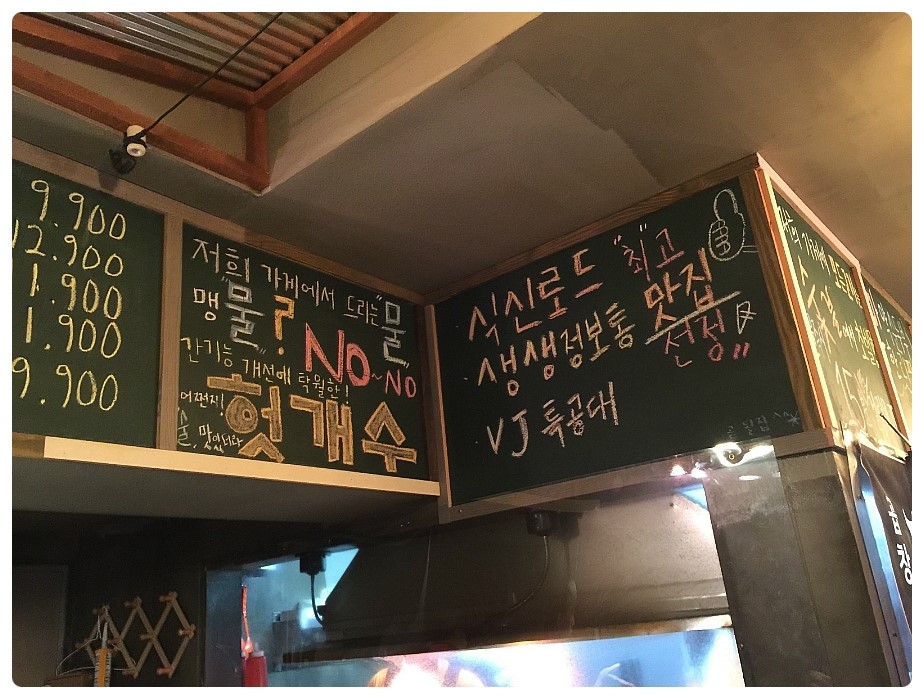 9.900
12.900
1.900
1.900
9.900
저희 가게에서 드리는 "물"
맹"물"?
NO~NO
간기능 개선에 탁월한!
헛개수
어쩐지!
술, 맛이더라
식신로드 "최고
생생정보통 맛집
VJ 특공대 선정"